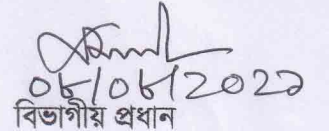 ০৮/০৮/২০২১
বিভাগীয় প্রধান